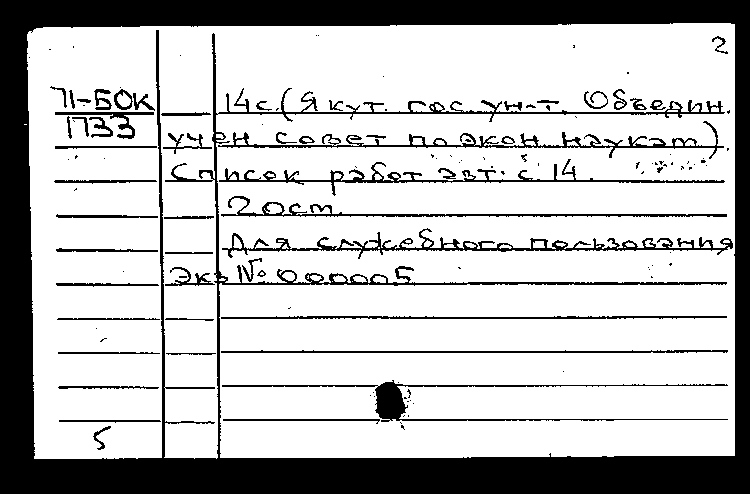 2
71-БОК
1733
14с. (Якут. гос. ун-т. Объедин.
учен. совет по экон. наукам).
Список работ авт. с. 14.
2 ост.
Для служебного пользования
Экз № 000005
5